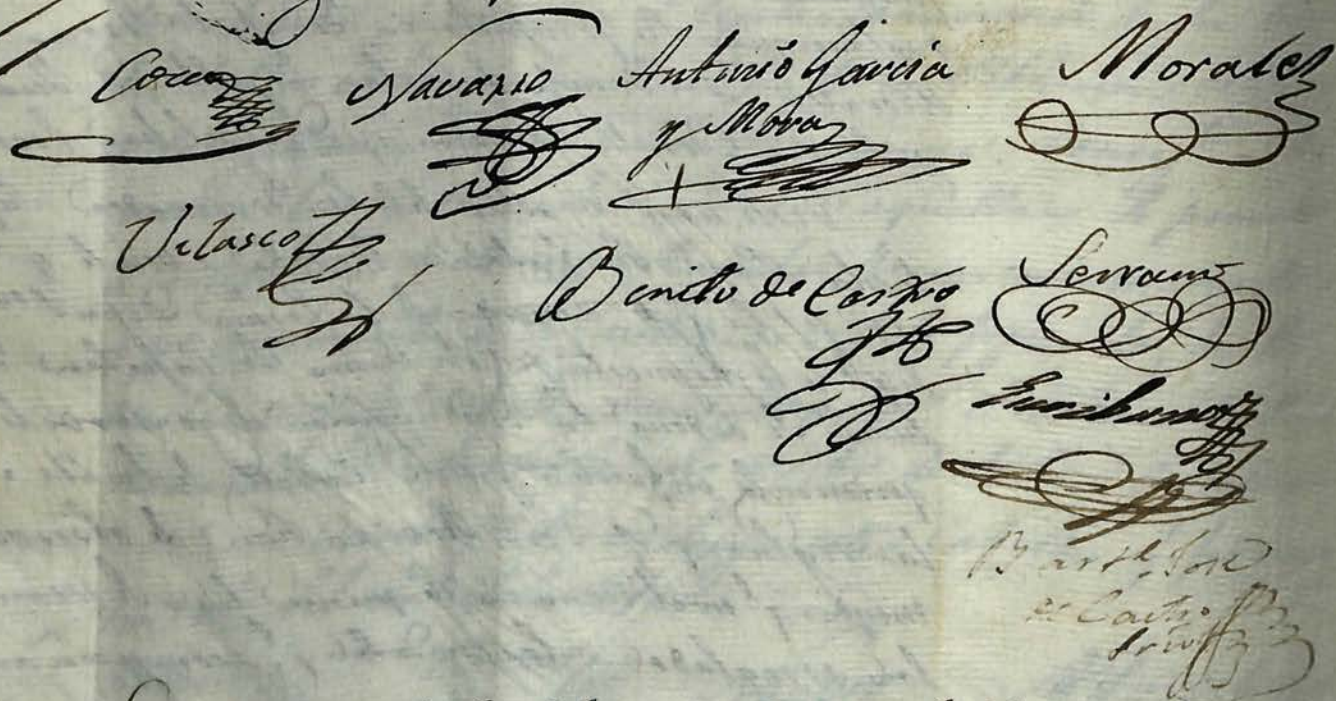 Navarro
Antonio Garcia
y Mora
Morales
Velasco
Benito de Castro
Serrano
Bart.e Jose
de Castro